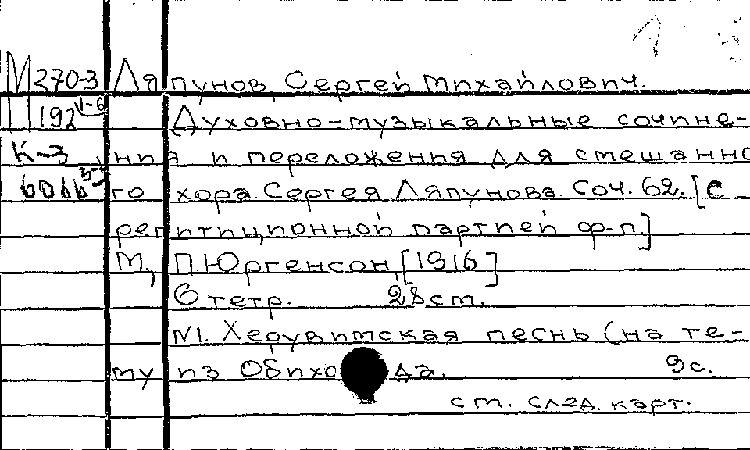 М 270-3 Ляпунов, Сергей Михайлович.
П 192 Духовно-музыкальные сочине-
К-3 ния и переложения для смешанно
го хора Сергея Ляпунова. Соч. 62. [С
репетиционной партией ф-п.]
М., П. Юргенсон, [1916]
6 тетр. 28 ст.
N1. Херувимская песнь (на те-
му из Обихода. 9 с.
см. след. карт.